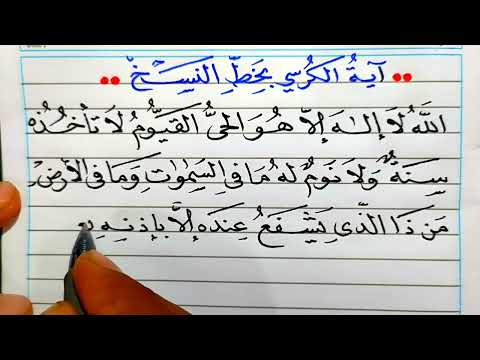 آيةُ الكُرسي بخَطِّ النَسِـخْ
اللَّهُ لَا إِلـٰهَ إِلَّا هُوَ الحَيُّ القَيُّومُ لَا تَأْخُذُهُ
سِنَةٌ وَلَا نَومٌ لَهُ مَا فِي السَمٰوٰتِ وَمَا فِي الأَرضِ
مَن ذَا الَّذِي يَشْفَعُ عِندَهُ إِلَّا بِإِذنِهِ